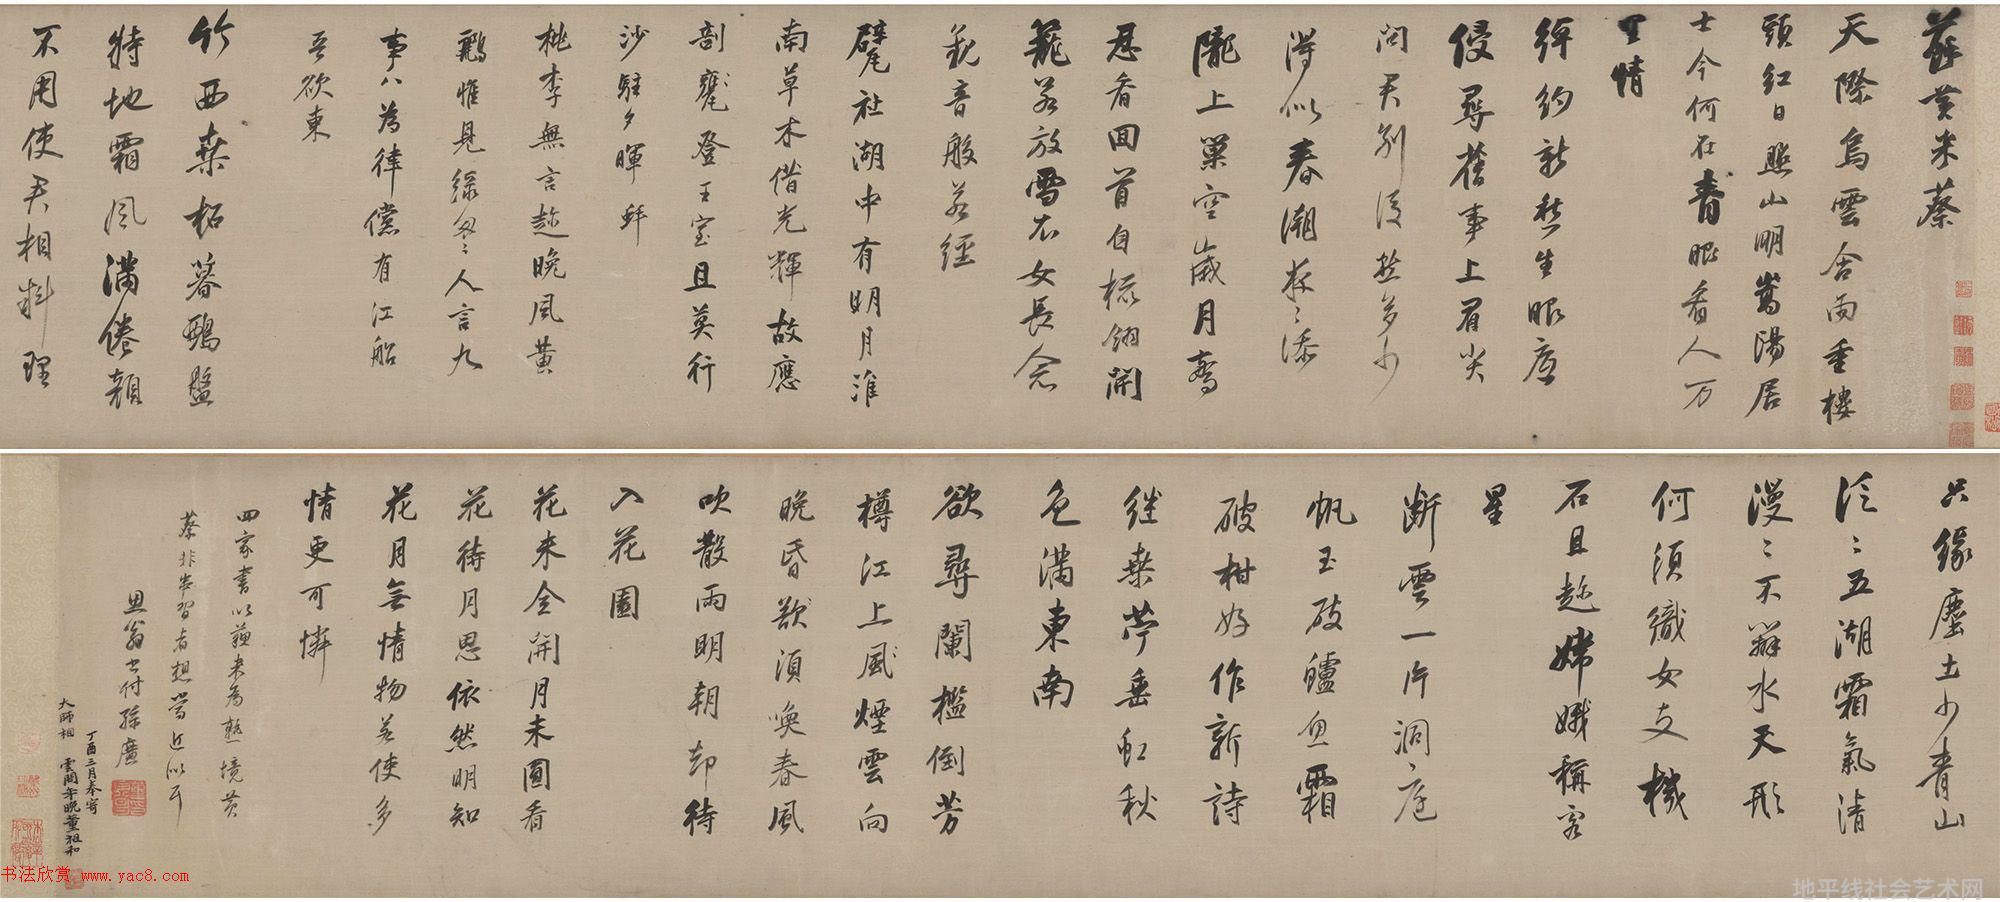 蘇黃米蔡
天際烏雲含雨重樓
頭紅日照山明嵩陽居
士今何在青眼看人万
里情
綽約新嬌生眼底
侵尋舊事上眉尖
問君別後愁多少
得似春潮夜〻添
隴上巢空歲月驚
忍看回首自梳翎開
籠若放雪衣女長念
觀音般若經
甓社湖中有明月淮
南草木借光輝故應
剖蚌登王室且莫行
沙駐夕暉 蚌
桃李無言趂晚風黃
鸝惟見綠匆〻人言九
事八為律儻有江船
吾欲東
竹西桑柘暮鴉盤
特地霜風滿倦顏
不用使君相料理
只緣塵土少青山
泛〻五湖霜氣清
漫〻不辨水天形
何須織女支機
石且趂嫦娥稱客
星
斷雲一片洞庭
帆玉破鱸魚霜
破柑好作新詩
繼桑苧垂虹秋
色滿東南
欲尋闌檻倒芳
樽江上風煙雲向
晚昏歡須喚春風
吹散雨明朝却待
入花園
花未全開月未圓看
花待月思依然明知
花月無情物若使多
情更可憐
四家書以蘇米為甜境黃
蔡非專習者想當近似耳
思翁書付孫廣
丁酉三月奉寄
大師相 雲間年晚董祖和
书法欣赏 www.yac8.com
地平线社会艺术网